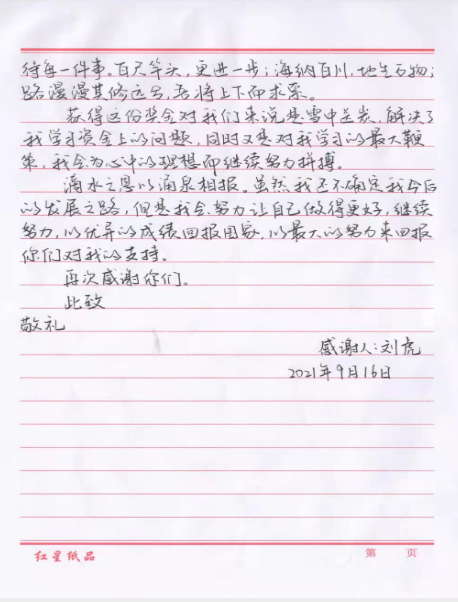 待每一件事。百尺竿头,更进一步;海纳百川,地生万物;
路漫漫其修远兮,吾将上下而求索。
获得这份奖金对我们来说是雪中送炭,解决了
我学习资金上的问题,同时又是对我学习的最大鞭
策,我会为心中的理想而继续努力拼搏。
滴水之恩以涌泉相报。虽然我还不确定我今后
的发展之路,但是我会努力让自己做得更好,继续
努力,以优异的成绩回报国家,以最大的努力来回报
你们对我的支持。
再次感谢你们。
此致
敬礼
感谢人:刘虎
2021年9月16日
红星纸品
第 页